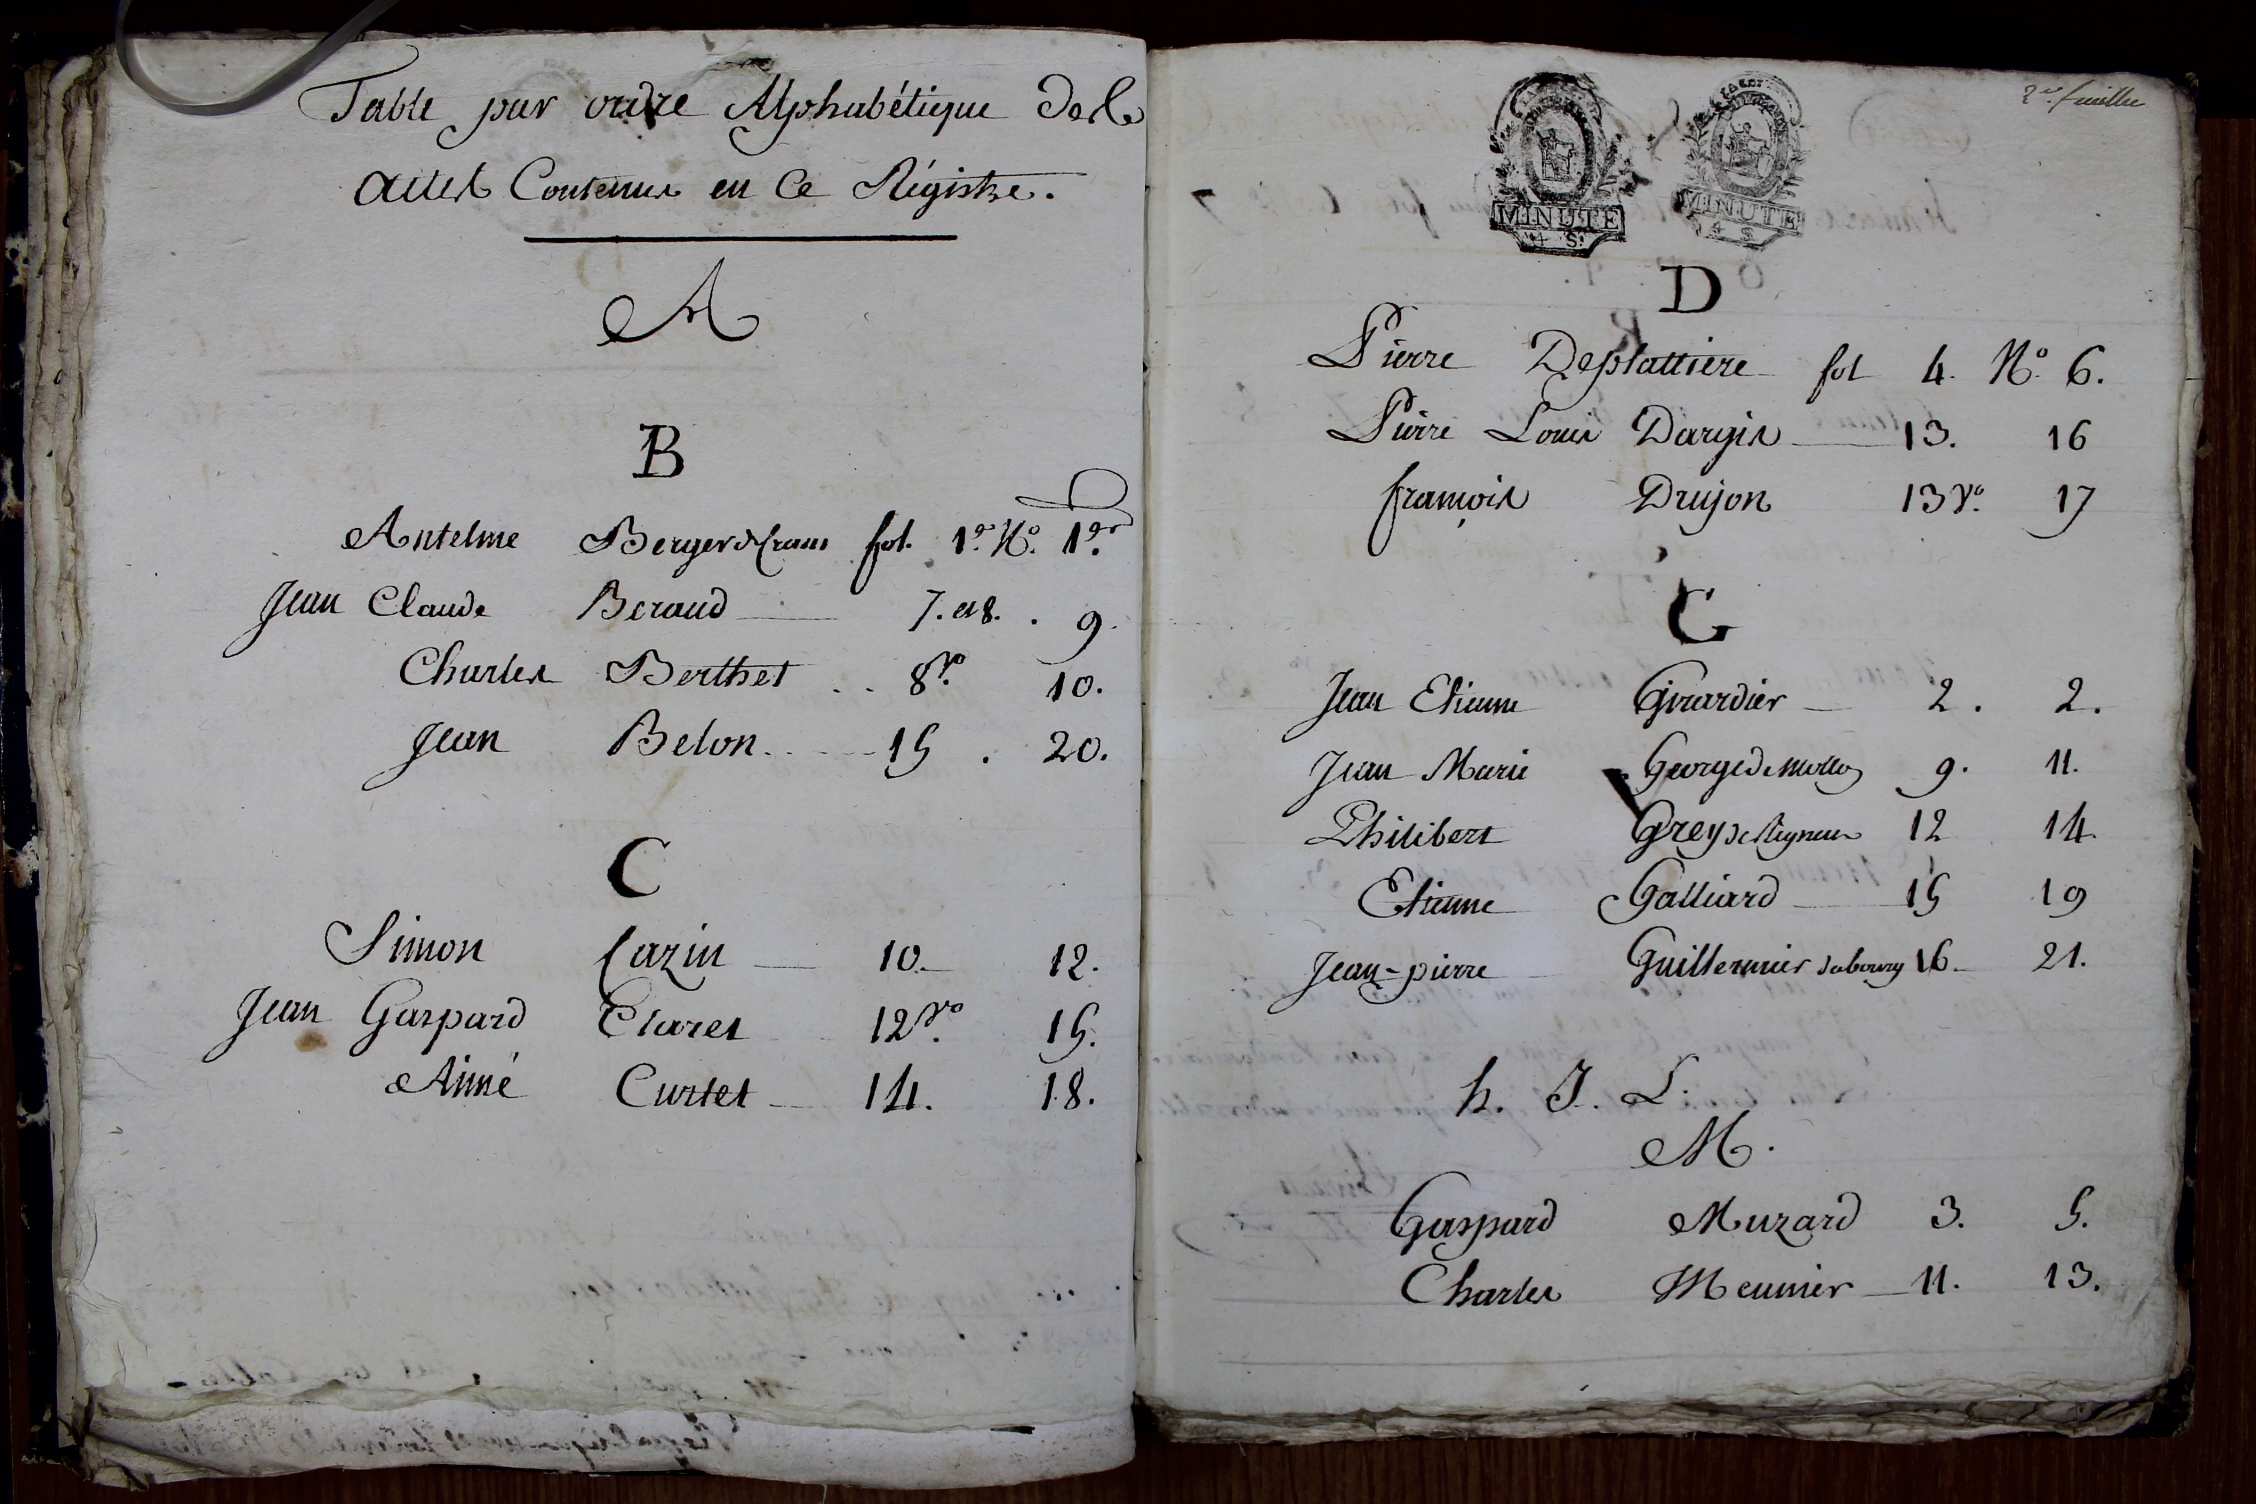 Table par ordre Alphabétique des
actes Contenus en Ce Régistre.
A
B
Antelme Berger fol. 1er No. 1er
Jean Claude Beraud 7. et 8. 9.
Charles Berthet 8vo. 10.
Jean Belon 15. 20.
C
Simon Cazin 10. 12.
Jean Gaspard Claret 12vo. 15.
Aimé Curtet 14. 18.
2me. feuillet
MINUTE
4 S.
MINUTE
4 S.
D
Pierre Deplattiere fol 4. No. 6.
Pierre Louis Dargis 13. 16
françois Drujon 13vo. 17
G
Jean Etienne Girardier 2. 2.
Jean Marie George 9. 11.
Philibert Grey 12 14.
Etienne Galliard 15 19
Jean-pierre Guillermier 16. 21.
h. J. L.
M.
Gaspard Muzard 3. 5.
Charles Meunier 11. 13.